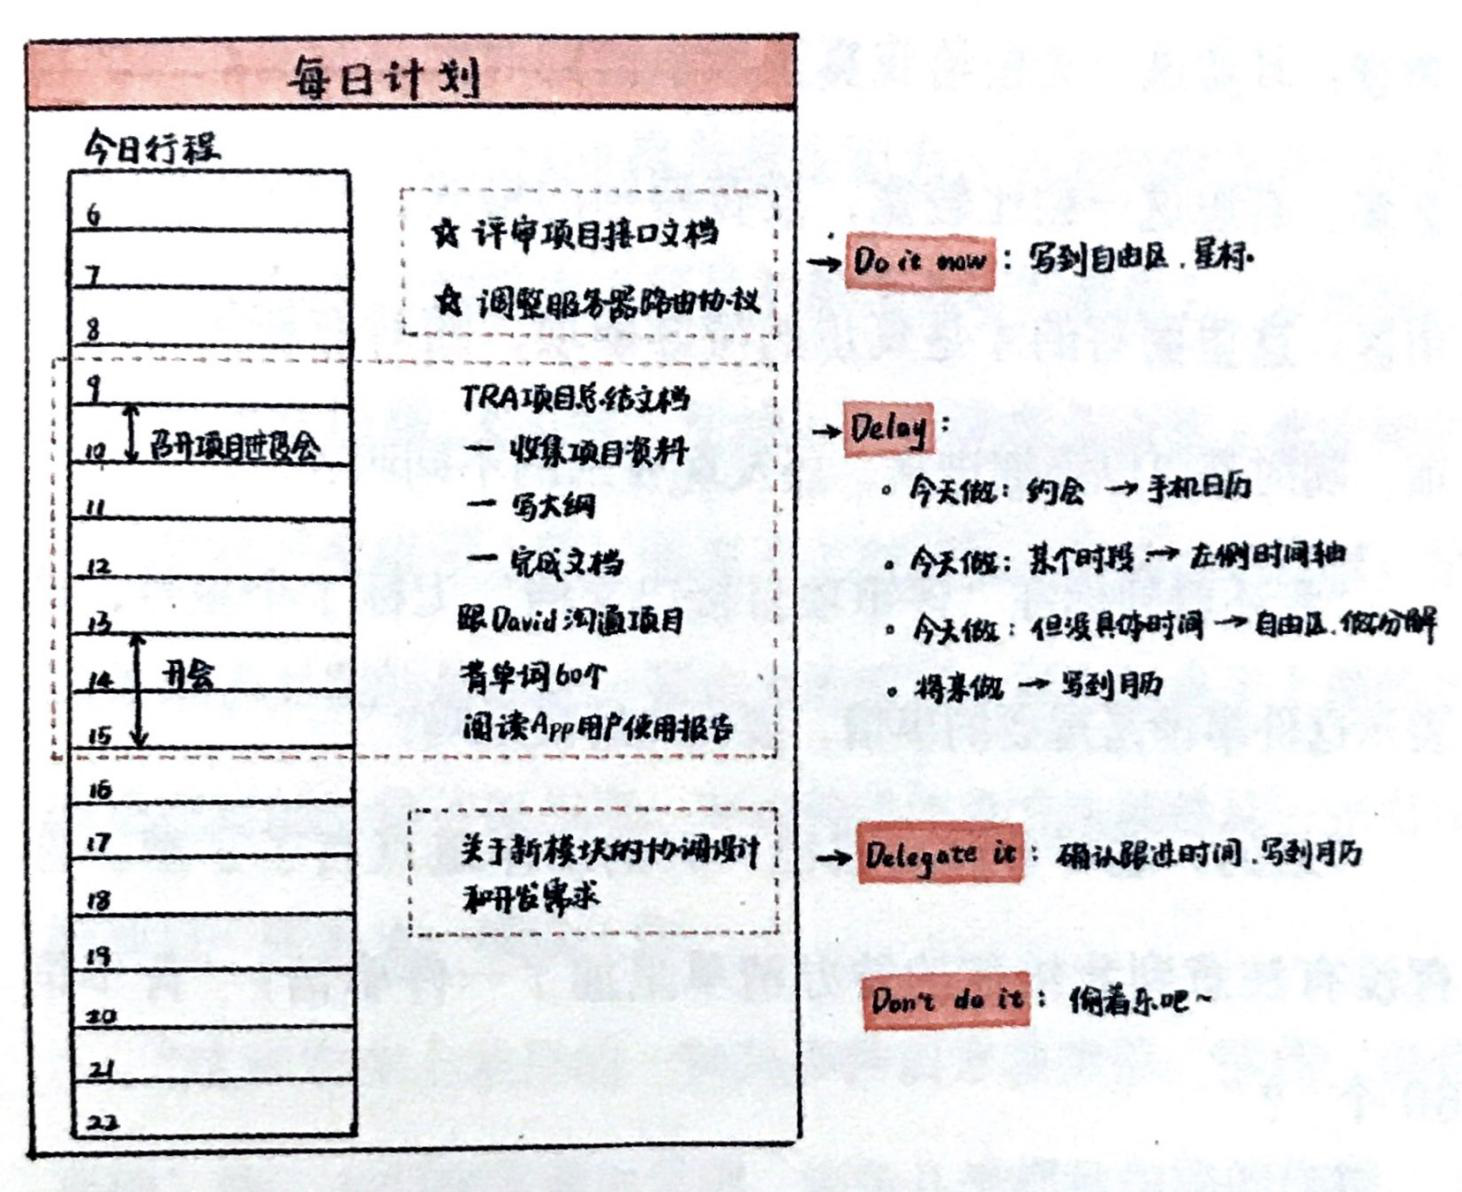 每日计划
今日行程
6
7
8
9
10 召开项目进度会
11
12
13
14 开会
15
16
17
18
19
20
21
22
☆ 评审项目接口文档
☆ 调整服务器路由协议
TRA项目总结文档
— 收集项目资料
— 写大纲
— 完成文档
跟David沟通项目
背单词60个
阅读App用户使用报告
关于新模块的协调设计
和开发需求
→ Do it now：写到自由区，星标。
→ Delay：
。今天做：约会 → 手机日历
。今天做：某个时段 → 左侧时间轴
。今天做：但没具体时间 → 自由区，做分解
。将来做 → 写到月历
→ Delegate it：确认跟进时间，写到月历
Don't do it：偷着乐吧~